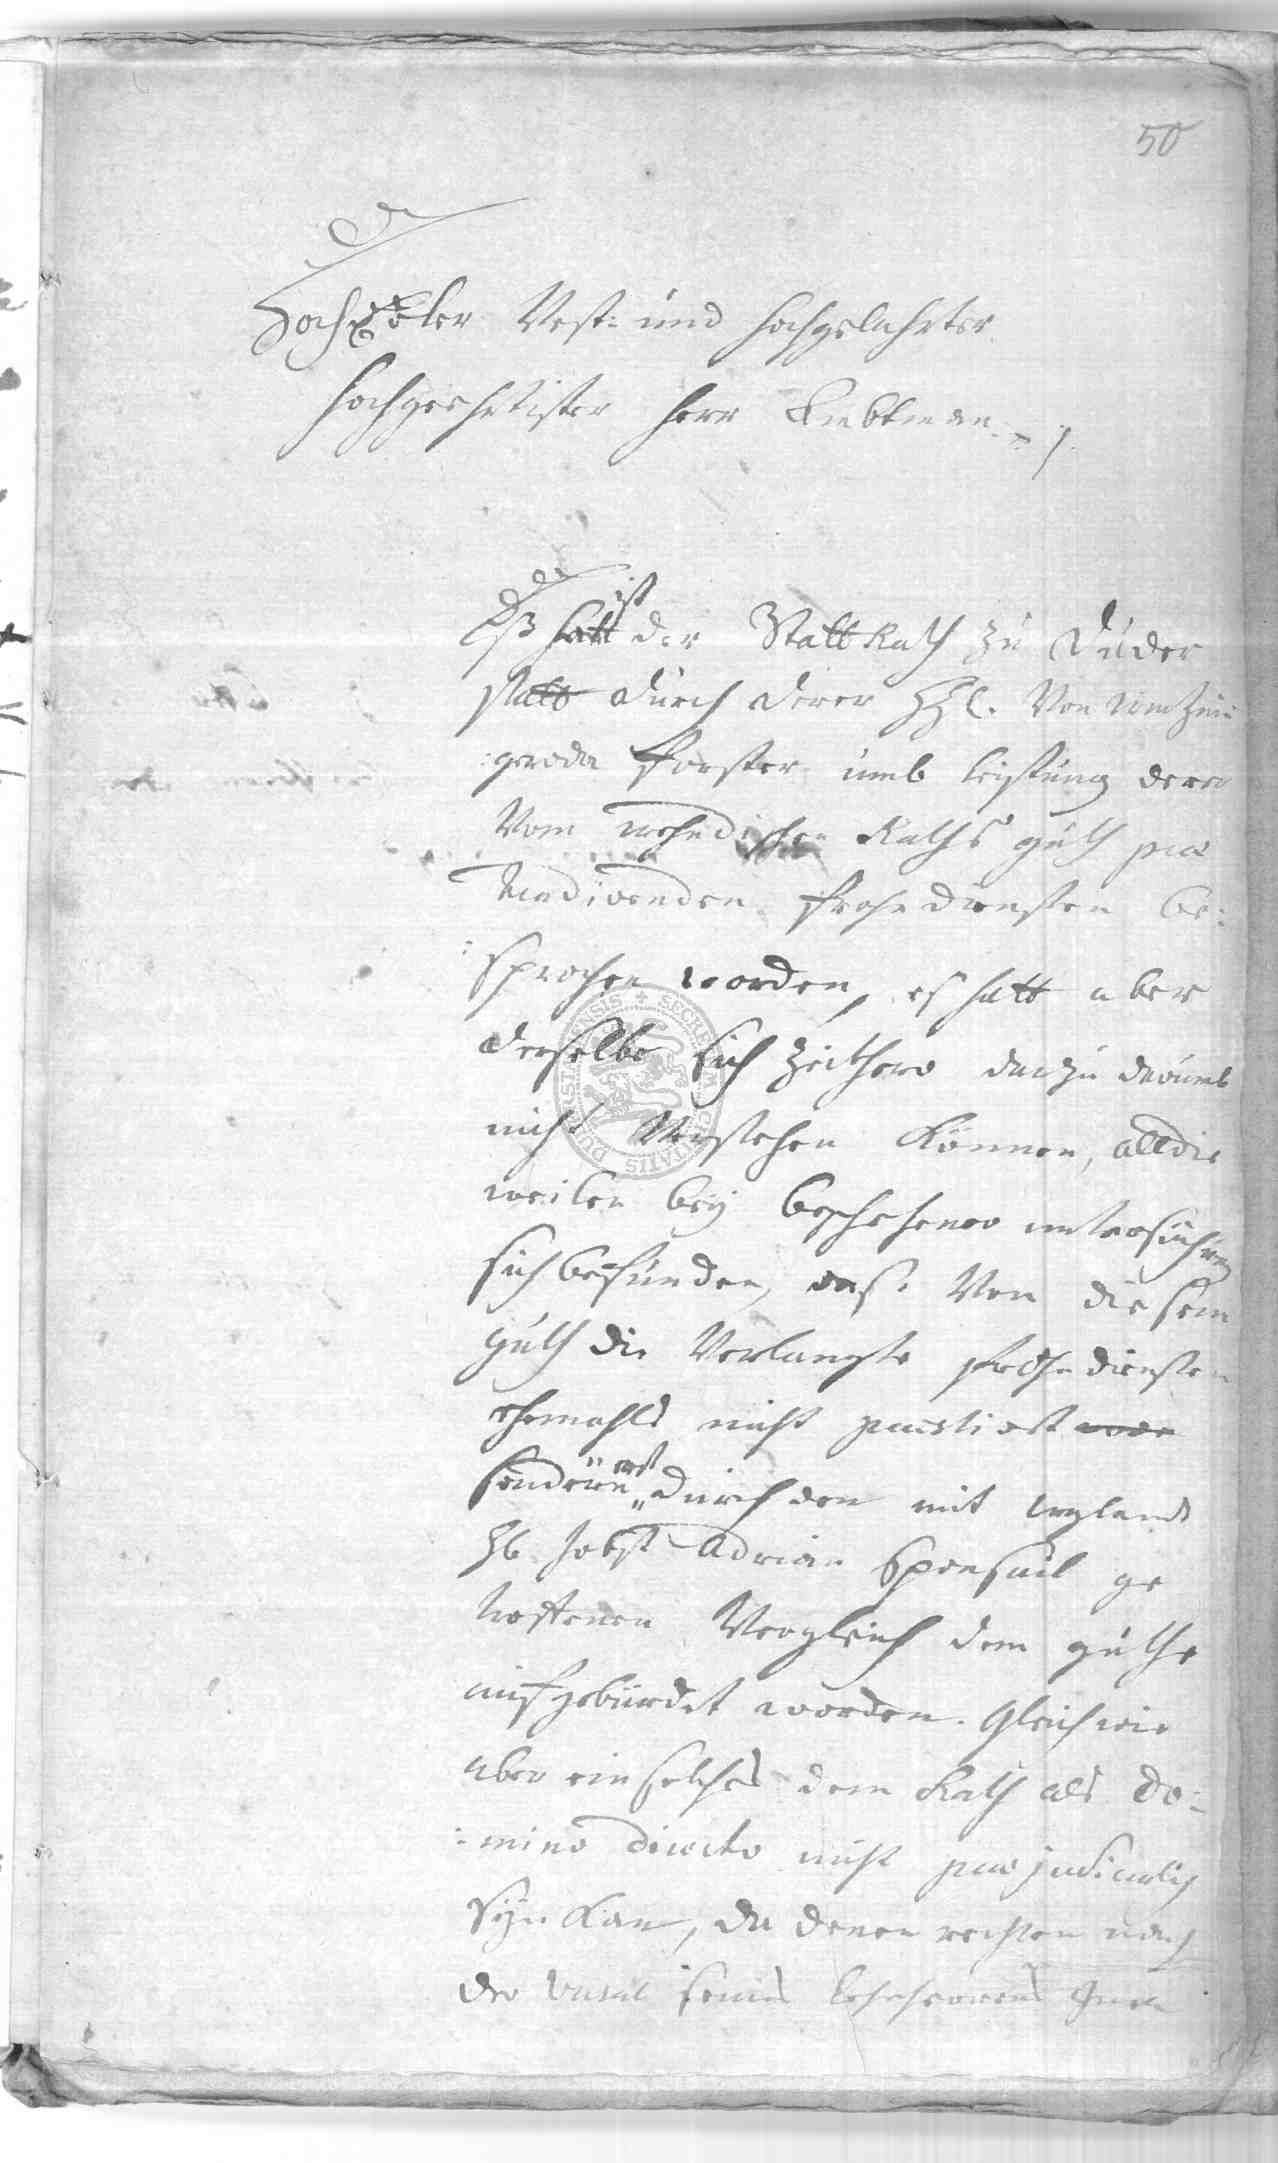 50
HochEdler Vest- und Hochgelahrter
Hochgeehrtister Herr Ambtman
Eß hatt ist der Statt Rath zu Duder
statt durch derer HH. Von Wintzin
geroda Forster umb leistung derer
Vom Raths guth prae
tendirenden Frohn diensten be:
:sprochen worden, es hatt aber
derselbe sich Zeithero dazu darumb
nicht Verstehen Können, alldie
weilen bey beschehener untersuchung
sich befunden, daß Von diesem
guth die Verlangte Frohn diensten
ehemahls nicht praestirt
sondern erst durch den mit weylandt
H. Jobst Adrian ge
troffenen Vergleich dem guthe
aufgebürdet worden. Gleich wie
aber ein solches dem Rath als Do:
:mino directo nicht praejudicirlich
seyn Kan, da denen rechten nach
der Vasal seines Lehnherrens